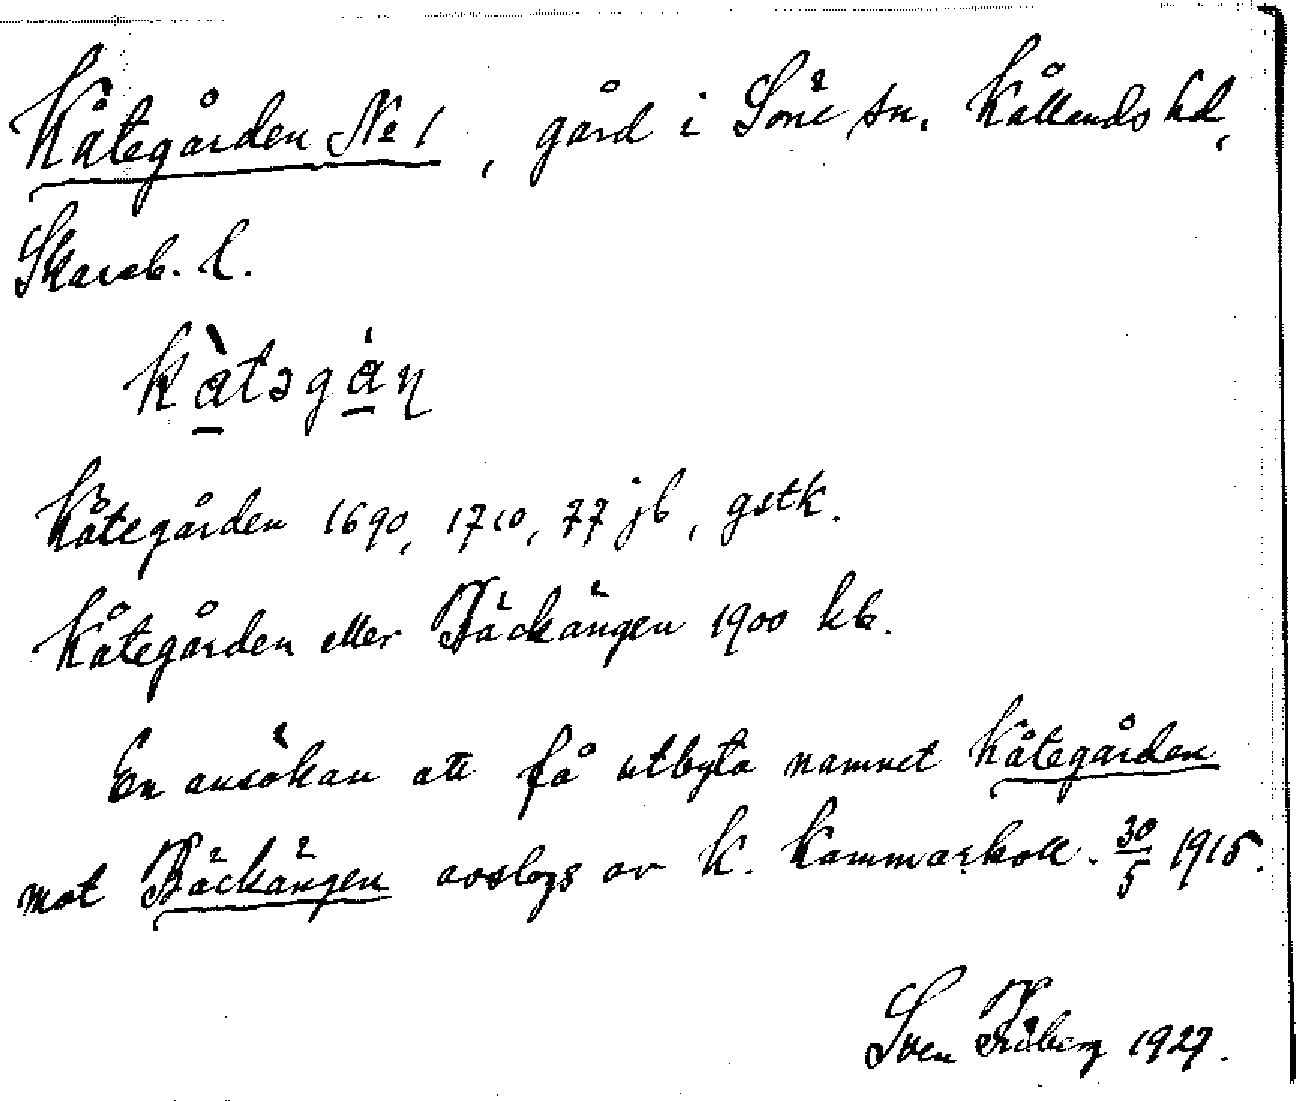 Kåtegården No 1, gård i Söne sn. Kållands hd,
Skarab. l.
kàtəgán
Kåtegården 1690, 1710, 77 jb, gstk.
Kåtegården eller Bäckängen 1900 kb.
En ansökan att få utbyta namnet Kåtegården
mot Bäckängen avslogs av K. Kammarkoll. 30/5 1915.
Sven 1927.